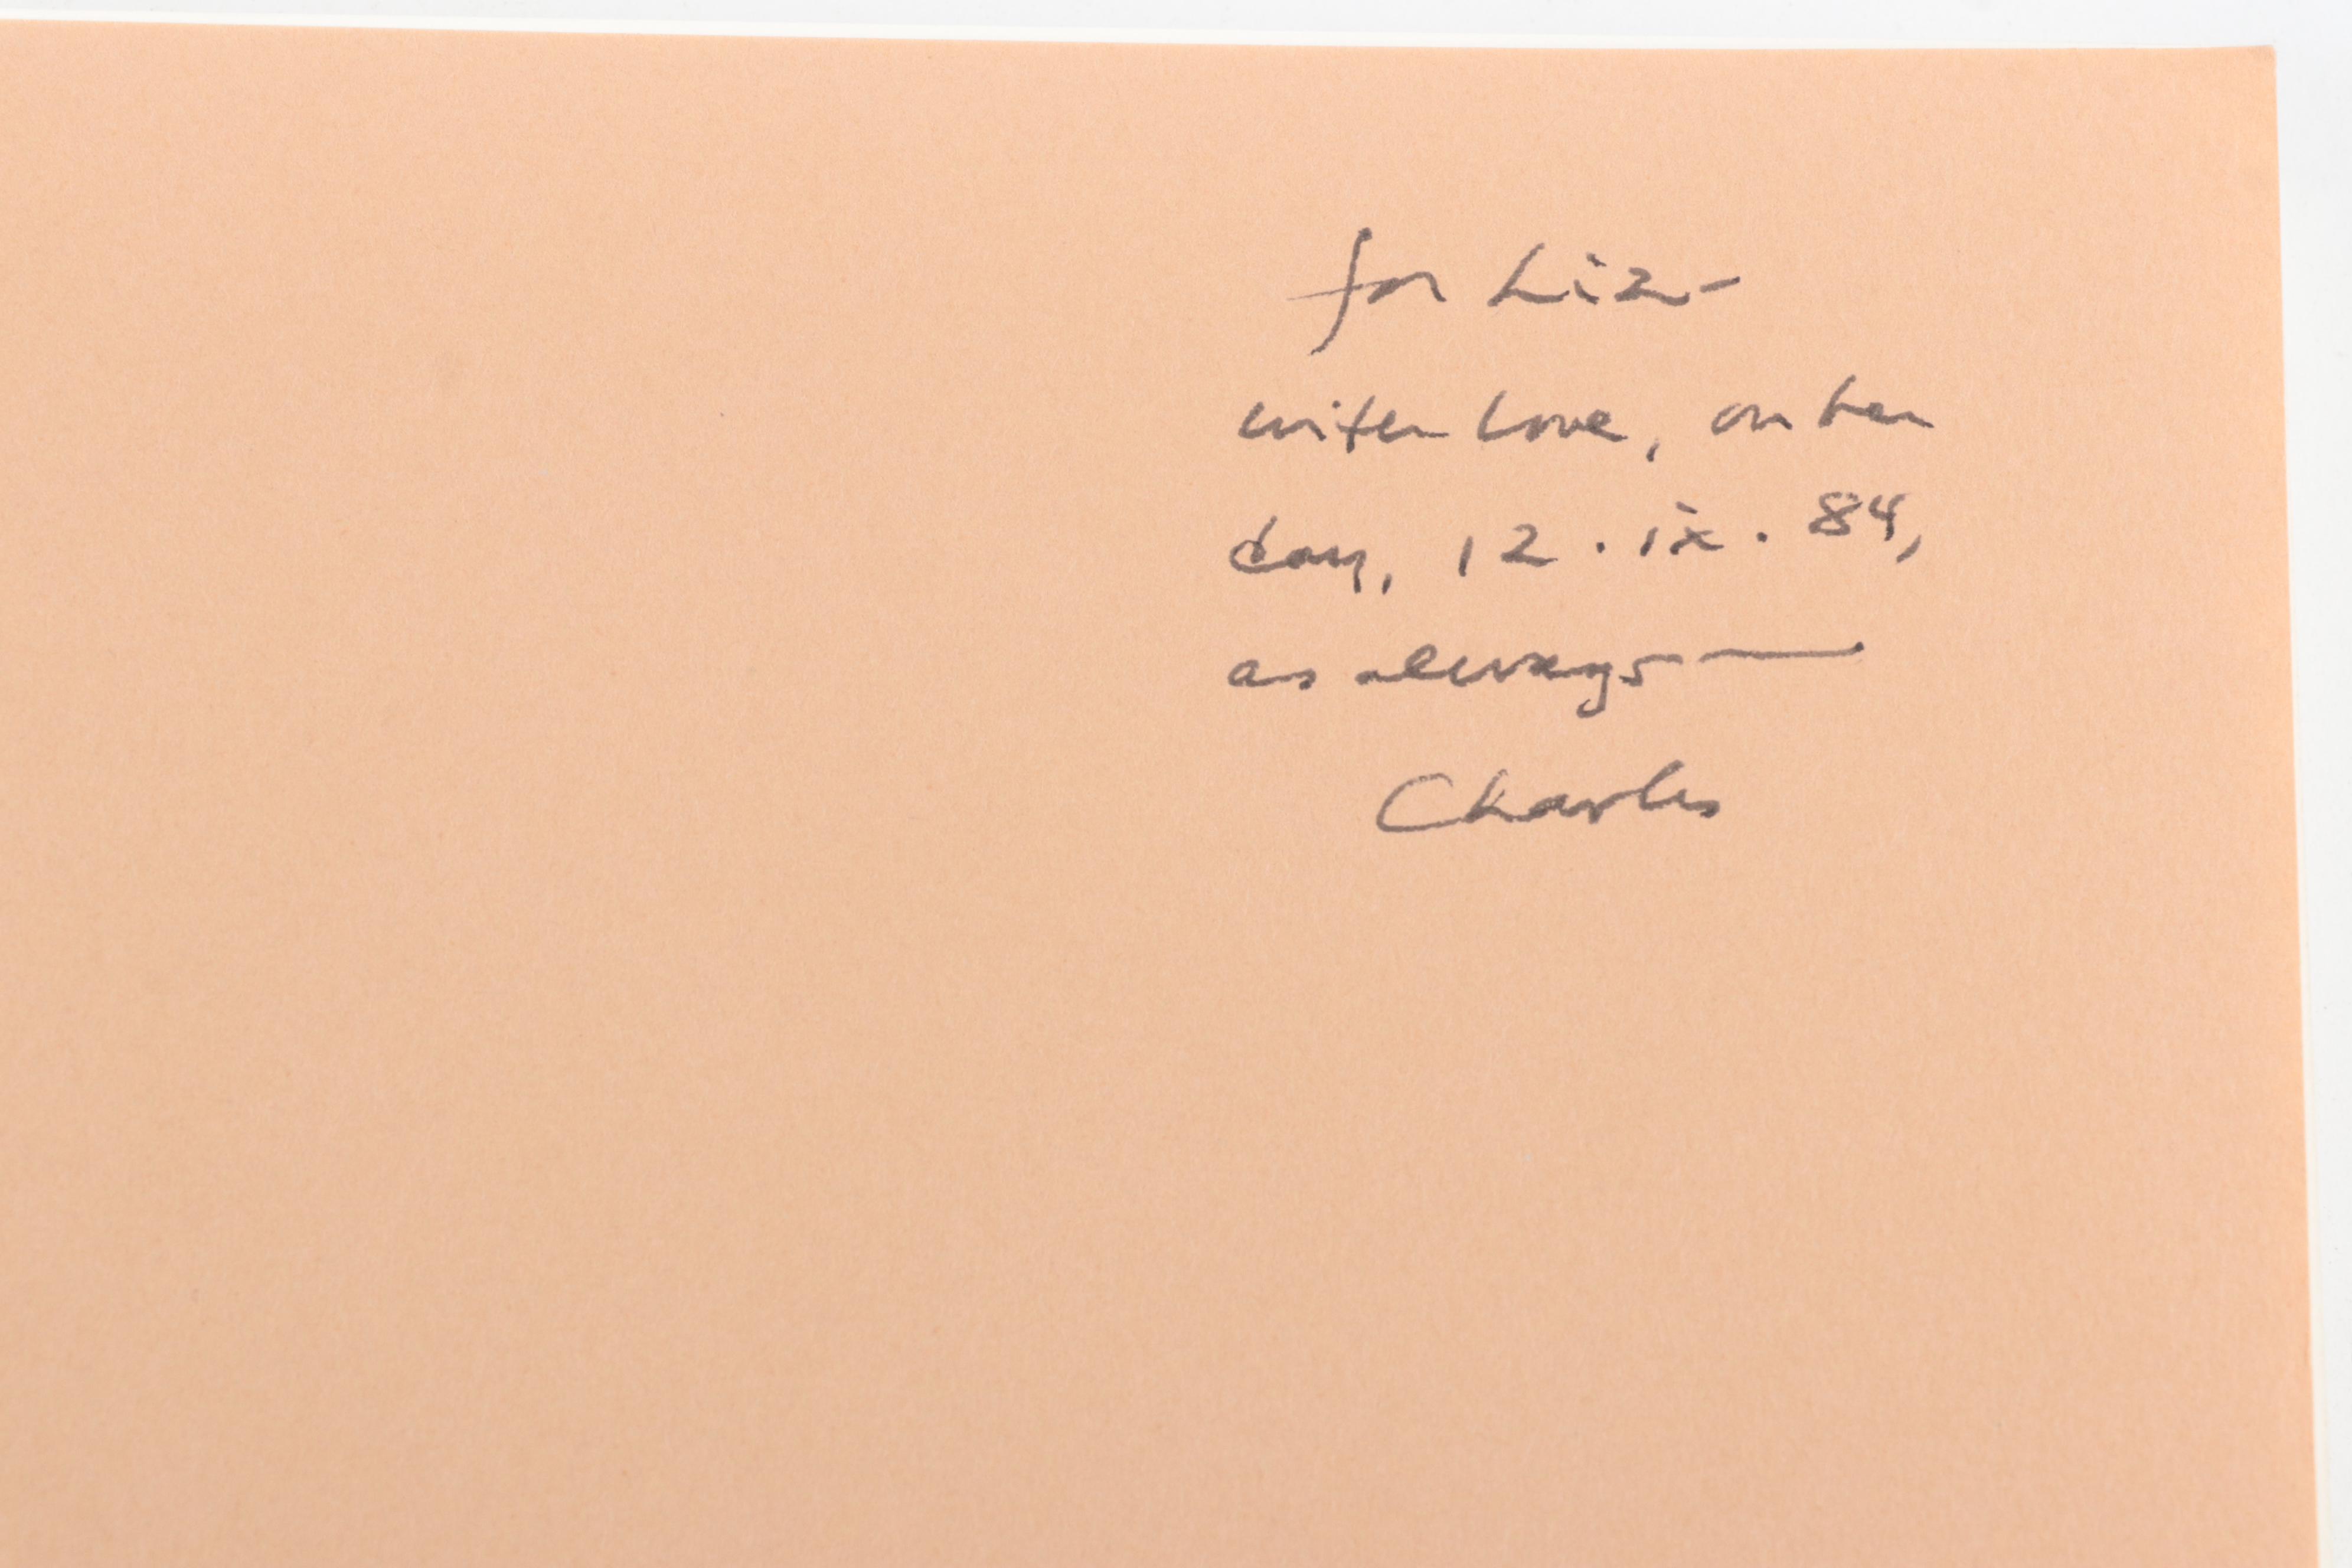 for Liz –
with love, on her
day, 12 . ix . 84,
as always —
Charles